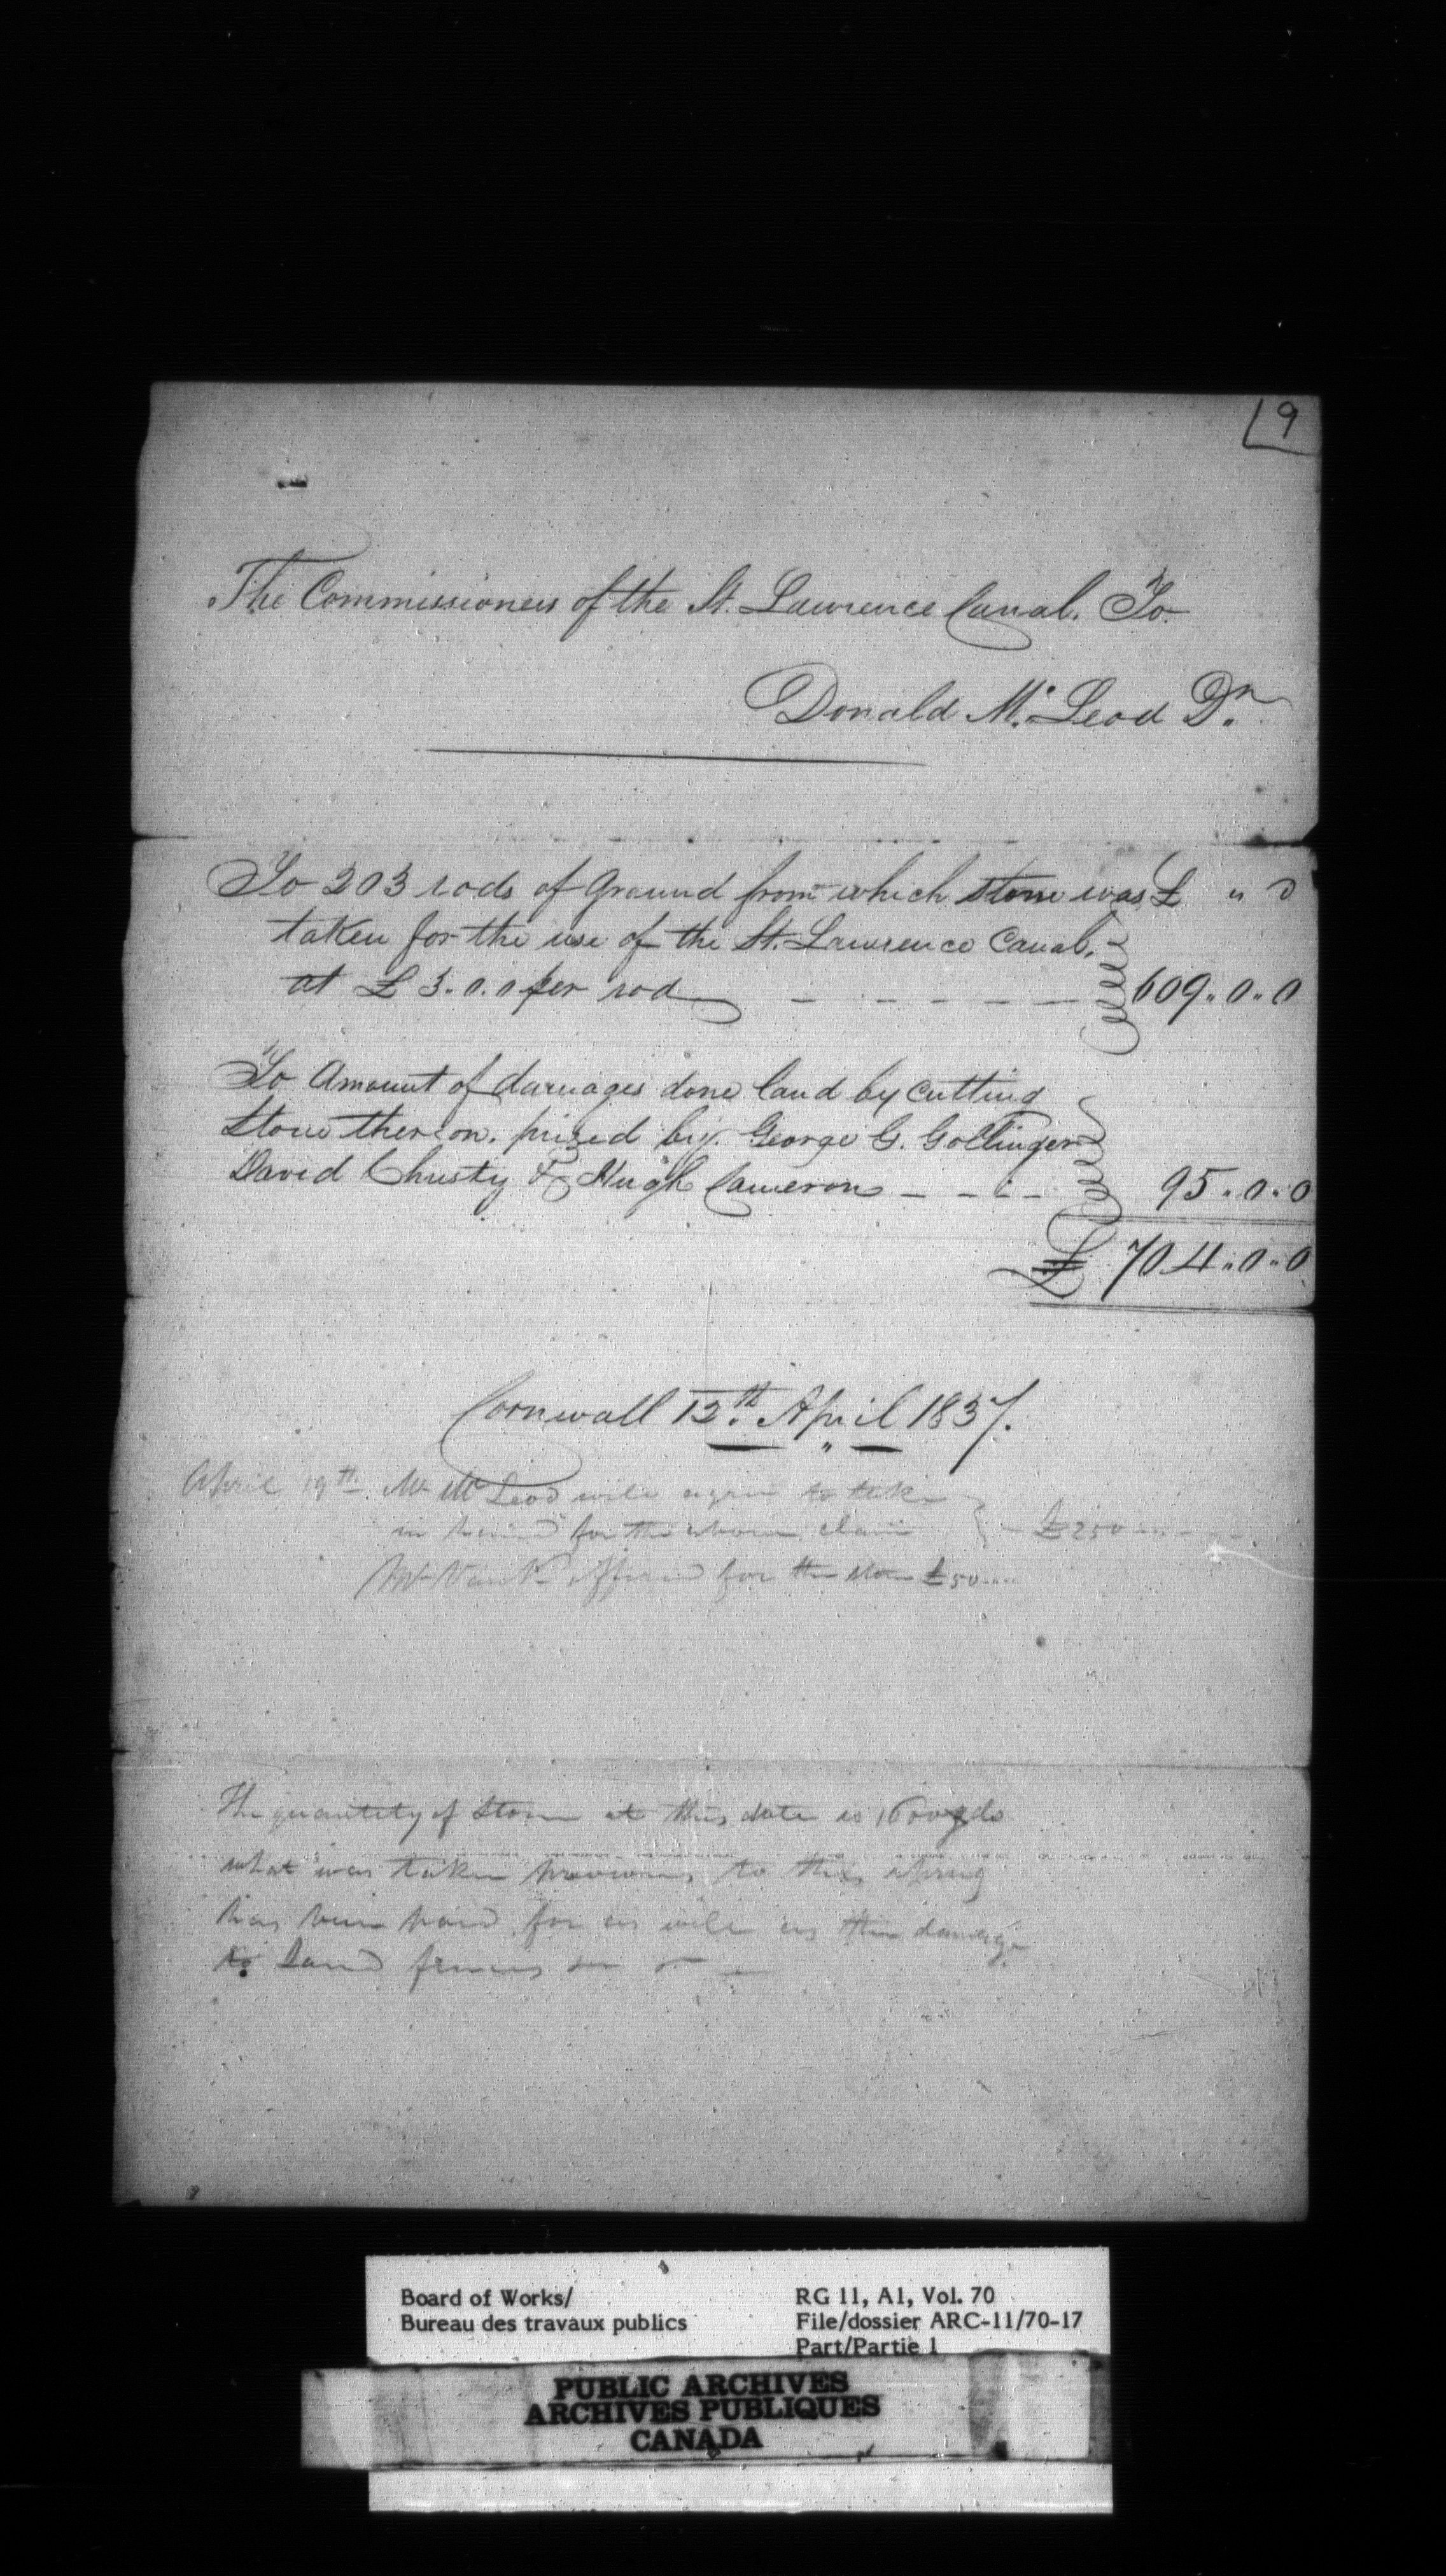 9
The Commissioners of the St. Lawrence Canal. To
Donald Mc. Leod Dr.
To 203 rods of Ground from which stone was £ " "
taken for the use of the St. Lawrence Canal.
at £ 3.0.0 per rod - - - - - - 609.0.0
To Amount of damages done land by cutting
Stone thereon. prized by George G. Gollinger
David Christy & Hugh Cameron - - - - 95.0.0
£ 704.0.0
Cornwall 12th. April 1837.
April 19th Mr McLeod will agree to take
in hand for the above claim } - £250
Mr offered for the stone £50
The quantity of Stone at this date is 1600 yds
what was taken previous to this spring
has been paid for as well as the damage
to Land fences
Board of Works/
Bureau des travaux publics
RG 11, A1, Vol. 70
File/dossier ARC-11/70-17
Part/Partie 1
PUBLIC ARCHIVES
ARCHIVES PUBLIQUES
CANADA